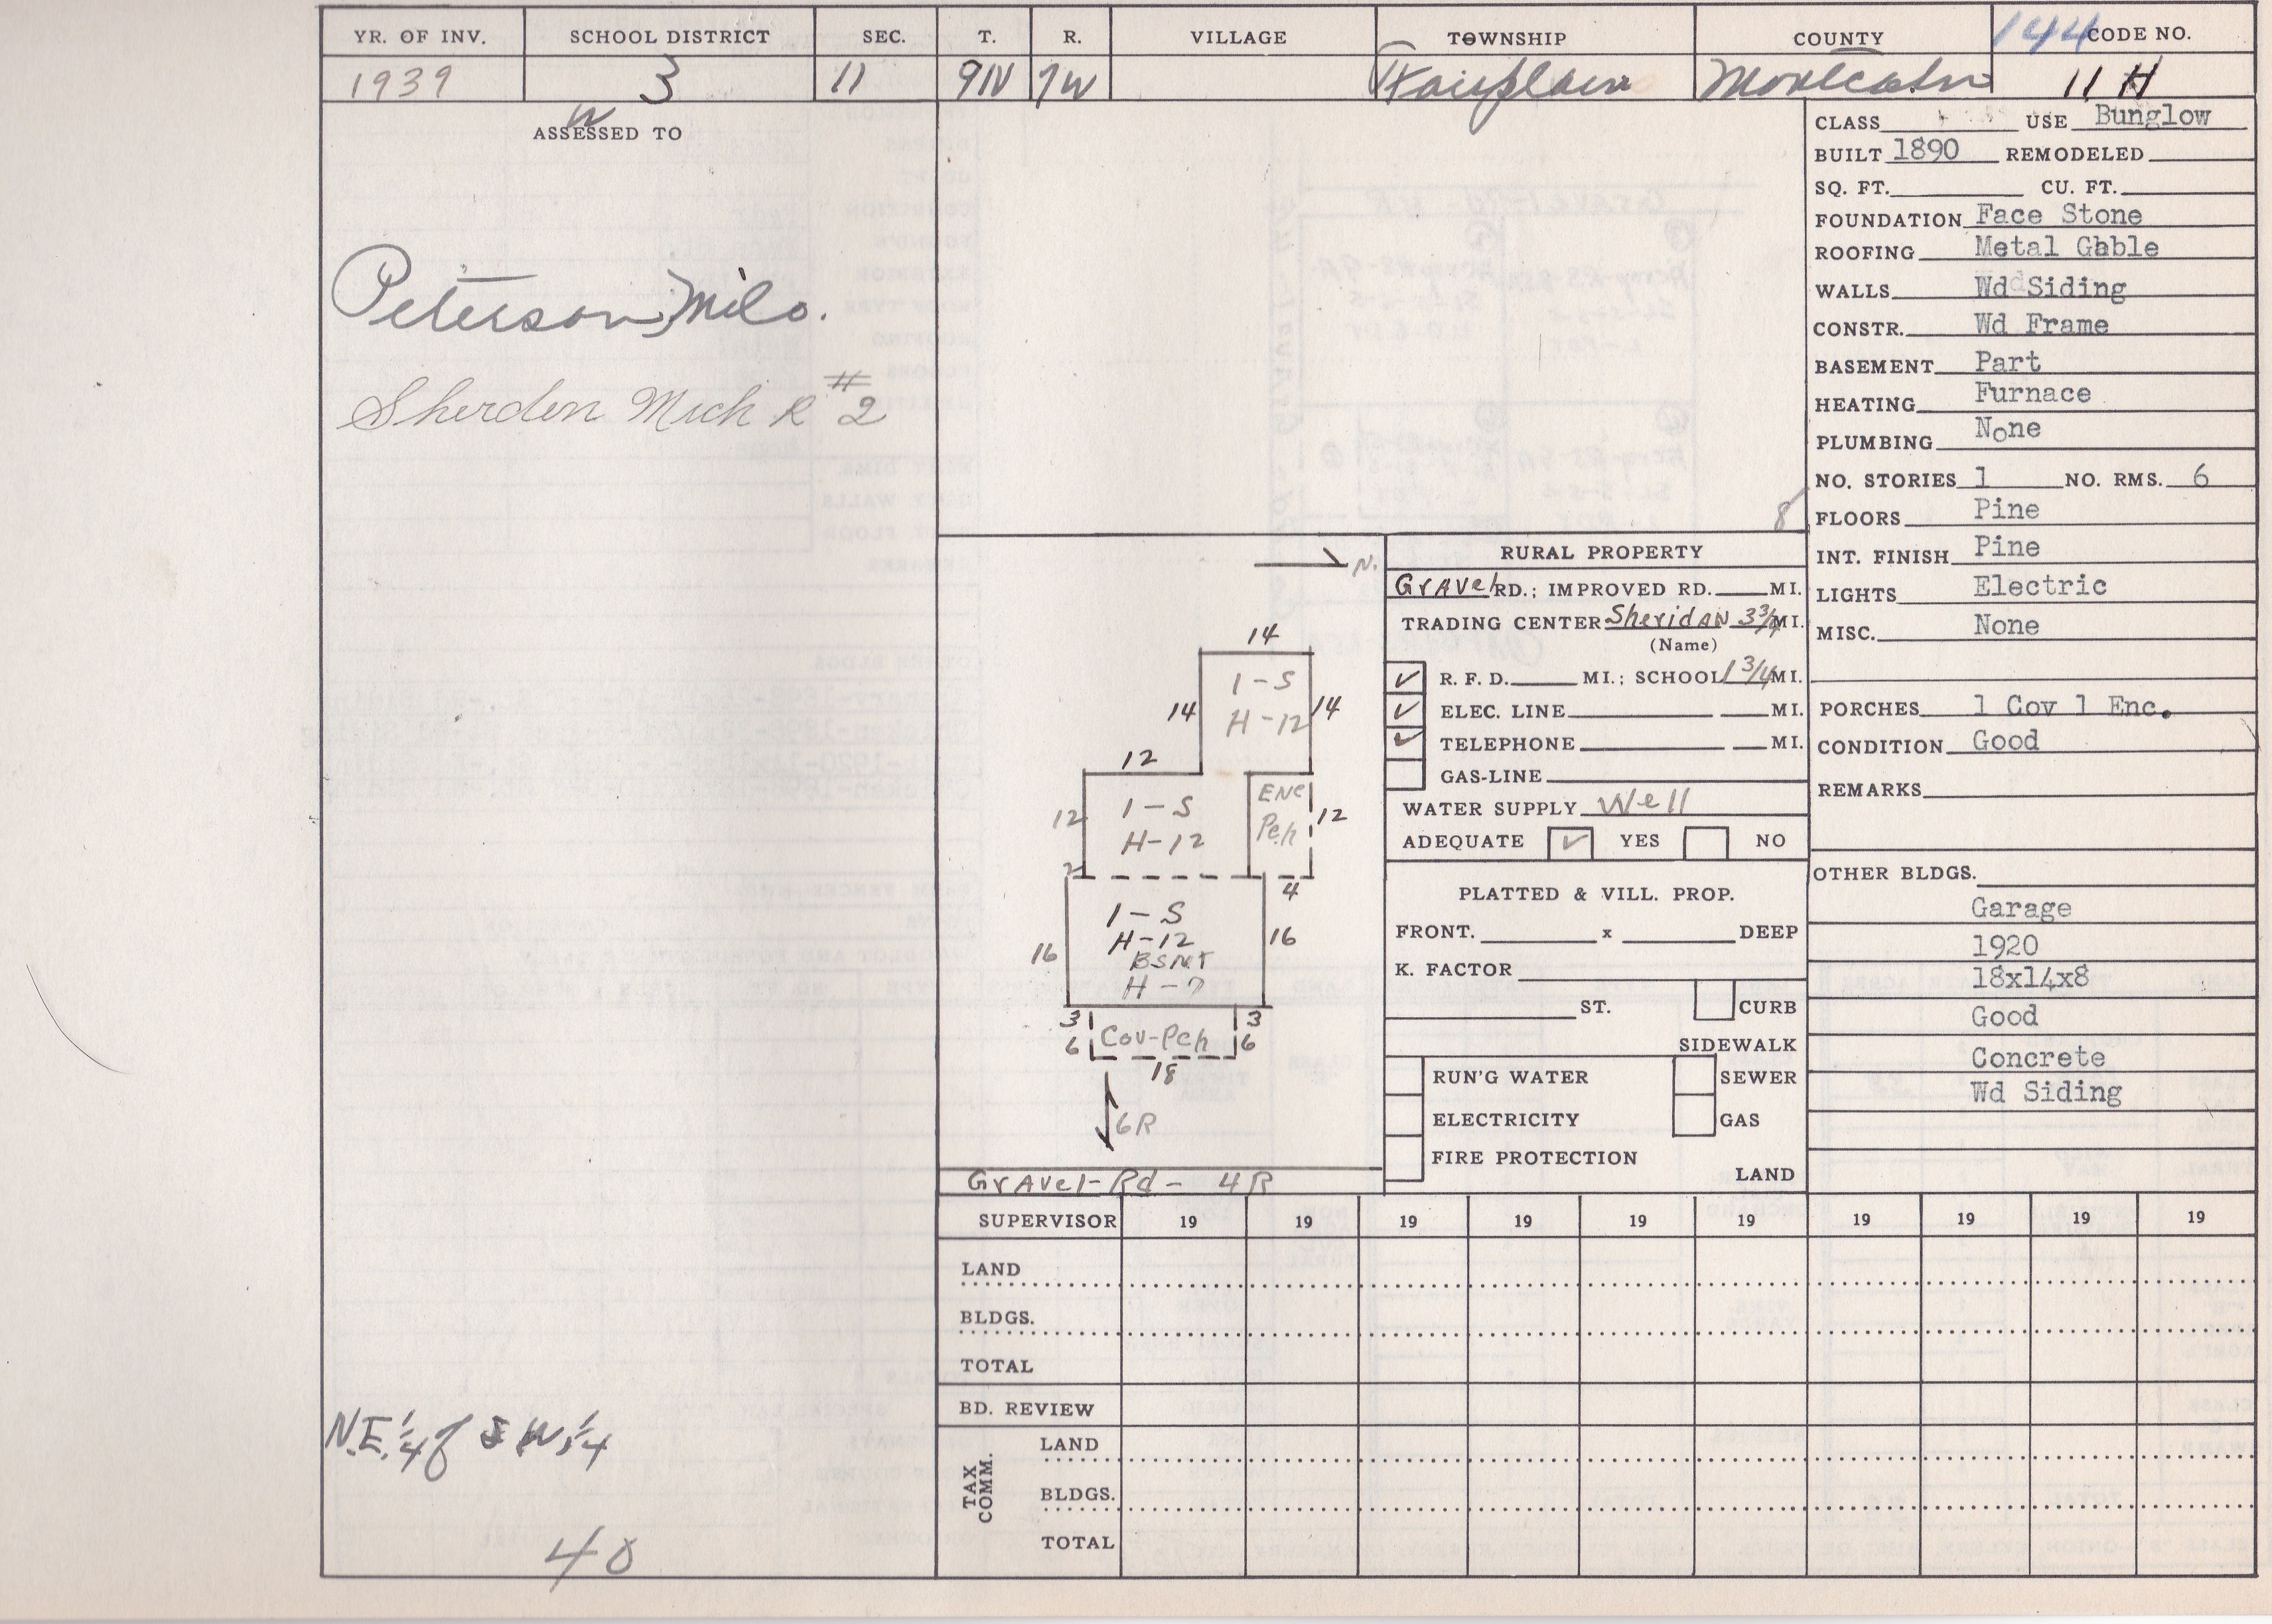 YR. OF INV. SCHOOL DISTRICT SEC. T. R. VILLAGE TOWNSHIP COUNTY 144 CODE NO.
1939 3 11 9N 7W Fairplain Montcalm 11 H
W
ASSESSED TO
Peterson, Milo.
Sherden Mich R #2
N.E. 1/4 of S W 1/4
40
8
CLASS USE Bunglow
BUILT 1890 REMODELED
SQ. FT. CU. FT.
FOUNDATION Face Stone
ROOFING Metal Gable
WALLS Wd Siding
CONSTR. Wd Frame
BASEMENT Part
HEATING Furnace
PLUMBING None
NO. STORIES 1 NO. RMS. 6
FLOORS Pine
INT. FINISH Pine
LIGHTS Electric
MISC. None
PORCHES 1 Cov 1 Enc.
CONDITION Good
REMARKS
OTHER BLDGS.
Garage
1920
18x14x8
Good
Concrete
Wd Siding
N.
14
1-S
14 H-12 14
12
12 1-S ENC
H-12 Pch 12
2 4
1-S
H-12
16 BSMT 16
H-7
3 3
6 Cov-Pch 6
18
6R
Gravel-Rd- 4R
RURAL PROPERTY
Gravel RD.; IMPROVED RD. MI.
TRADING CENTER Sheridan 3 3/4 MI.
(Name)
✓ R. F. D. MI.; SCHOOL 1 3/4 MI.
✓ ELEC. LINE MI.
✓ TELEPHONE MI.
GAS-LINE
WATER SUPPLY Well
ADEQUATE ✓ YES NO
PLATTED & VILL. PROP.
FRONT. x DEEP
K. FACTOR
ST. CURB
SIDEWALK
RUN'G WATER SEWER
ELECTRICITY GAS
FIRE PROTECTION
LAND
SUPERVISOR 19 19 19 19 19 19 19 19 19 19
LAND
BLDGS.
TOTAL
BD. REVIEW
TAX COMM.
LAND
BLDGS.
TOTAL